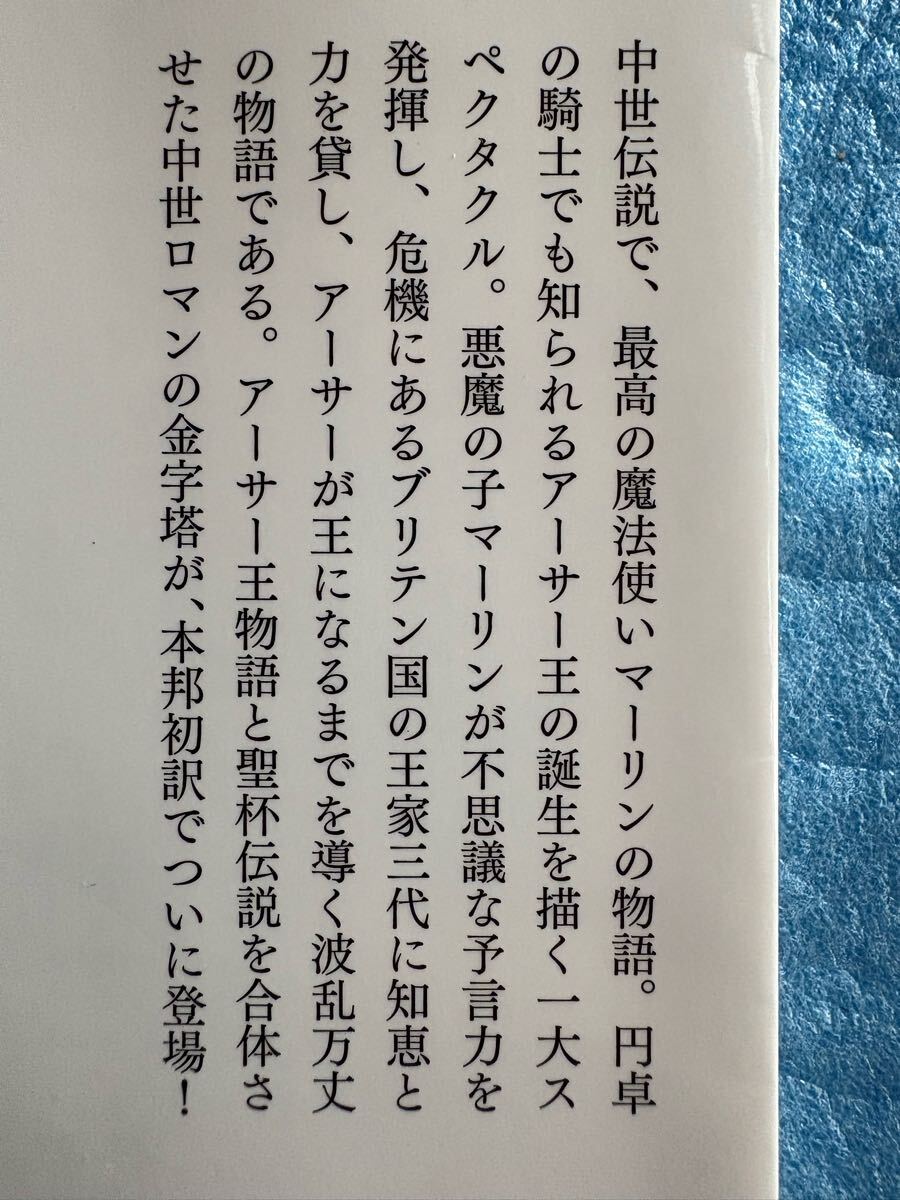 中世伝説で、最高の魔法使いマーリンの物語。円卓
の騎士でも知られるアーサー王の誕生を描く一大ス
ペクタクル。悪魔の子マーリンが不思議な予言力を
発揮し、危機にあるブリテン国の王家三代に知恵と
力を貸し、アーサーが王になるまでを導く波乱万丈
の物語である。アーサー王物語と聖杯伝説を合体さ
せた中世ロマンの金字塔が、本邦初訳でついに登場！